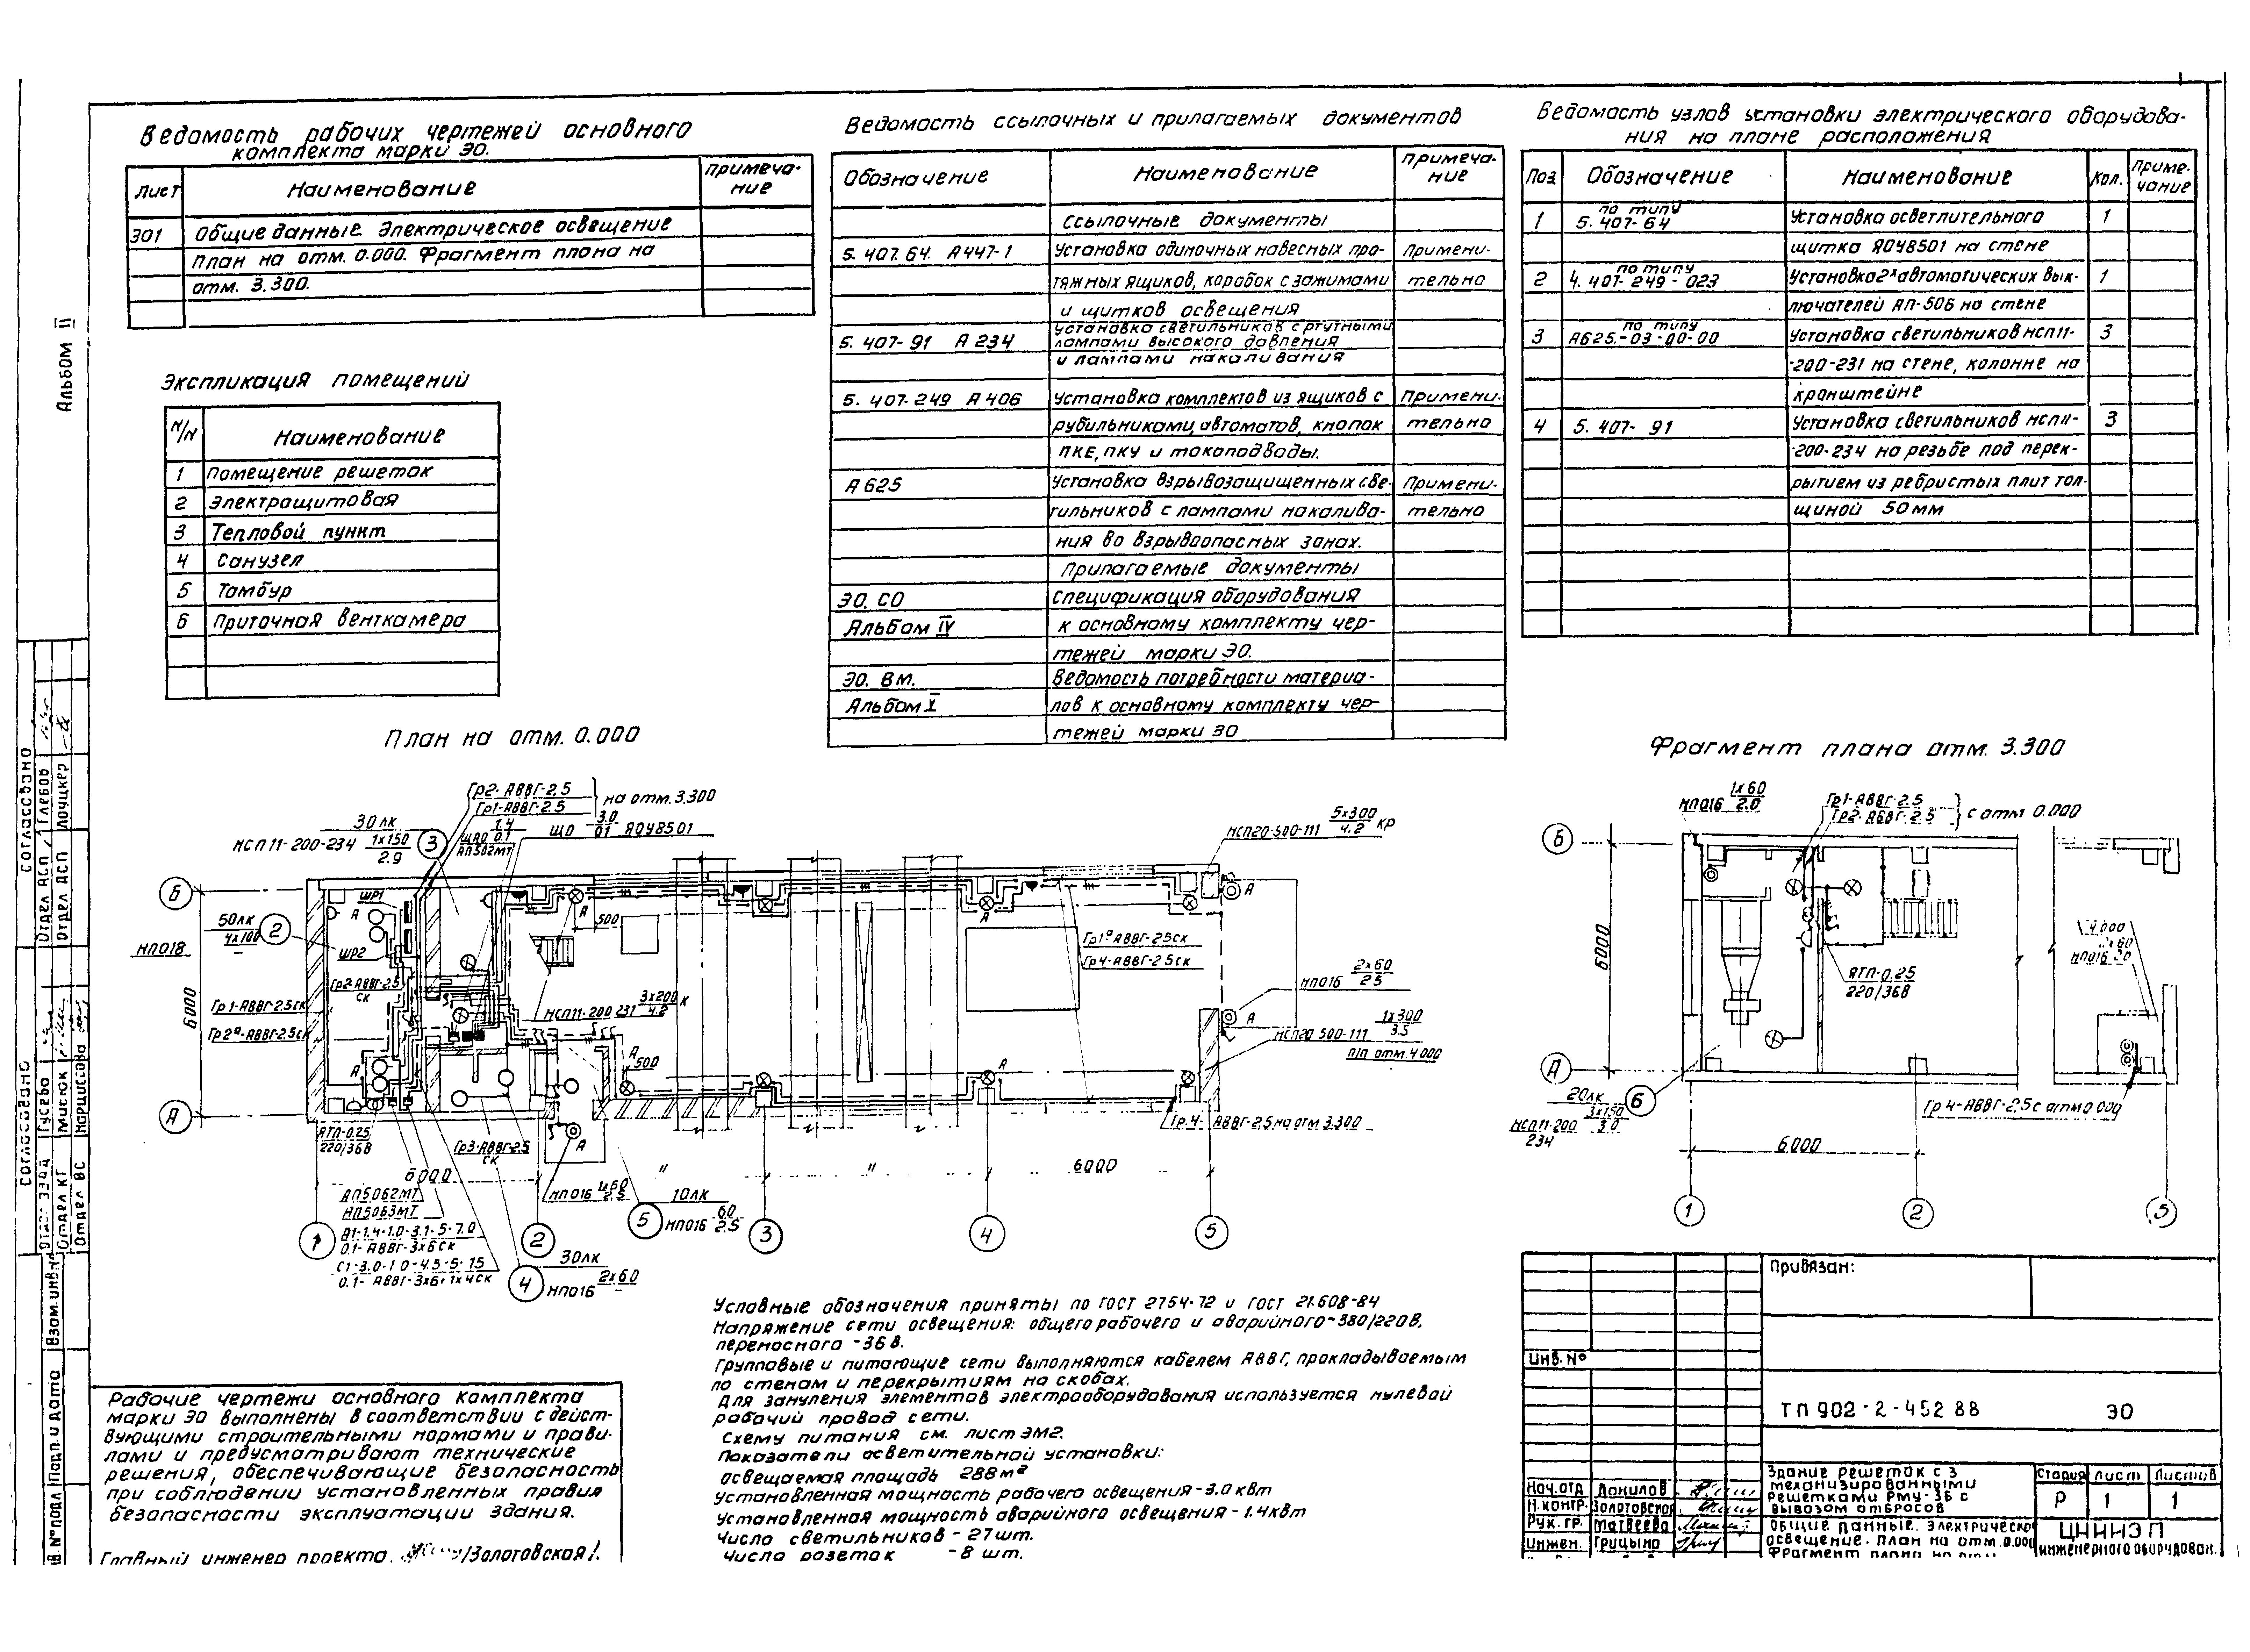 Альбом II
Ведомость рабочих чертежей основного
комплекта марки ЭО.
Лист Наименование Примеча-
ние
ЭО1 Общие данные Электрическое освещение
план на отм. 0.000. Фрагмент плана на
отм. 3.300.
Экспликация помещений
N/N Наименование
1 Помещение решеток
2 Электрощитовая
3 Тепловой пункт
4 Санузел
5 Тамбур
6 Приточная венткамера
Ведомость ссылочных и прилагаемых документов
Обозначение Наименование Примеча-
ние
Ссылочные документы
5.407.64. А447-1 Установка одиночных навесных про- Примени-
тяжных ящиков, коробок с зажимами тельно
и щитков освещения
5.407-91 А 234 Установка светильников с ртутными
лампами высокого давления
и лампами накаливания
5. 407-249 А 406 Установка комплектов из ящиков с Примени-
рубильниками, автоматов, кнопок тельно
ПКЕ, ПКУ и токоподводы.
А 625 Установка взрывозащищенных све- Примени-
тильников с лампами накалива- тельно
ния во взрывоопасных зонах.
Прилагаемые документы
ЭО. СО Спецификация оборудования
Альбом IV к основному комплекту чер-
тежей марки ЭО.
ЭО. ВМ. Ведомость потребности материа-
Альбом X лов к основному комплекту чер-
тежей марки ЭО
Ведомость узлов установки электрического оборудова-
ния на плане расположения
Поз Обозначение Наименование Кол. Приме-
чание
1 по типу 5.407-64 Установка осветлительного 1
щитка ЯОУ8501 на стене
2 по типу 4.407-249-023 Установка 2х автоматических вык- 1
лючателей АП-50Б на стене
3 по типу А625.-03-00-00 Установка светильников НСП11- 3
-200-231 на стене, колонне на
кронштейне
4 5.407- 91 Установка светильников НСП11- 3
-200-234 на резьбе под перек-
рытием из ребристых плит тол-
щиной 50мм
План на отм. 0.000
Гр2-АВВГ-2,5
Гр1-АВВГ-2.5
на отм. 3.300
30лк
НСП11-200-234 1х150
2.9
3
1.4
ЩАО 0.1
АП502МТ
ЩО 3.0
0.1 ЯОУ8501
НСП20-500-111 5х300
4.2 кр
Б
50лк
4х100
2
НПО18
ШР1
ШР2
А
500
Гр2-АВВГ-2.5
ск
Гр1-АВВГ-2.5ск
Гр2а-АВВГ-2.5ск
6000
Гр1а АВВГ-2.5ск
Гр4-АВВГ-2.5ск
НПО16 2х60
2.5
НСП11-200 231 3х200
4.2 к
А
НСП20 500-111 1х300
3.5
П/П отм. 4.000
500
А
Гр.4- АВВГ-2.5 на отм 3.300
ЯТП-0.25
220/36В
Гр3-АВВГ-2.5
ск
6000 " " 6000
АП5062МТ
АП5063МТ
А1-1.4-1.0-3.1-5-7.0
0.1-АВВГ-3х6ск
С1-3.0-1.0-4.5-5-15
0.1- АВВГ-3х6+1х4ск
НПО16 1х60
2.5
10лк
5 НПО16 60
2.5
1 2 3 4 5
30лк
4 НПО16 2х60
Фрагмент плана отм. 3.300
1х60
НПО16 2.0
Гр1-АВВГ-2.5
Гр2-АВВГ-2.5
с отм 0.000
Б
6000
ЯТП-0.25
220/36В
4.000
НПО16
А
20лк
6
НСП11-200 3х150
234 3.0
Гр 4-АВВГ-2,5 с отм 0.000
6000
1 2 5
Условные обозначения приняты по ГОСТ 2754-72 и ГОСТ 21.608-84
Напряжение сети освещения: общего рабочего и аварийного-380/220В,
переносного -36В.
Групповые и питающие сети выполняются кабелем АВВГ, прокладываемым
по стенам и перекрытиям на скобах.
Для зануления элементов электрооборудования используется нулевой
рабочий провод сети.
Схему питания см. лист ЭМ2.
Показатели осветительной установки:
освещаемая площадь 288м²
Установленная мощность рабочего освещения-3.0 кВт
Установленная мощность аварийного освещения-1.4кВт
Число светильников - 27шт.
Число розеток - 8 шт.
Рабочие чертежи основного комплекта
марки ЭО выполнены в соответствии с дейст-
вующими строительными нормами и прави-
лами и предусматривают технические
решения, обеспечивающие безопасность
при соблюдении установленных правил
безопасности эксплуатации здания.
Главный инженер проекта /Золотовская/.
Привязан:
Инв. №
ТП 902-2-452 88 ЭО
Нач.отд Данилов
Н.контр. Золотовская
Рук. гр. Матвеева
Инжен. Грицына
Здание решеток с 3
механизированными
решетками РМУ-3Б с
вывозом отбросов
Стадия Лист Листов
Р 1 1
Общие данные. Электрическое
освещение. План на отм. 0.000
Фрагмент плана на отм.
ЦНИИЭП
инженерного оборудован.
Согласовано
Отдел АСП Глебов
Отдел АСП Лоуцкер
Согласовано
Гусева
Отдел КГ Мисюк
Отдел ВС
Взам. инв.№
Подп. и дата